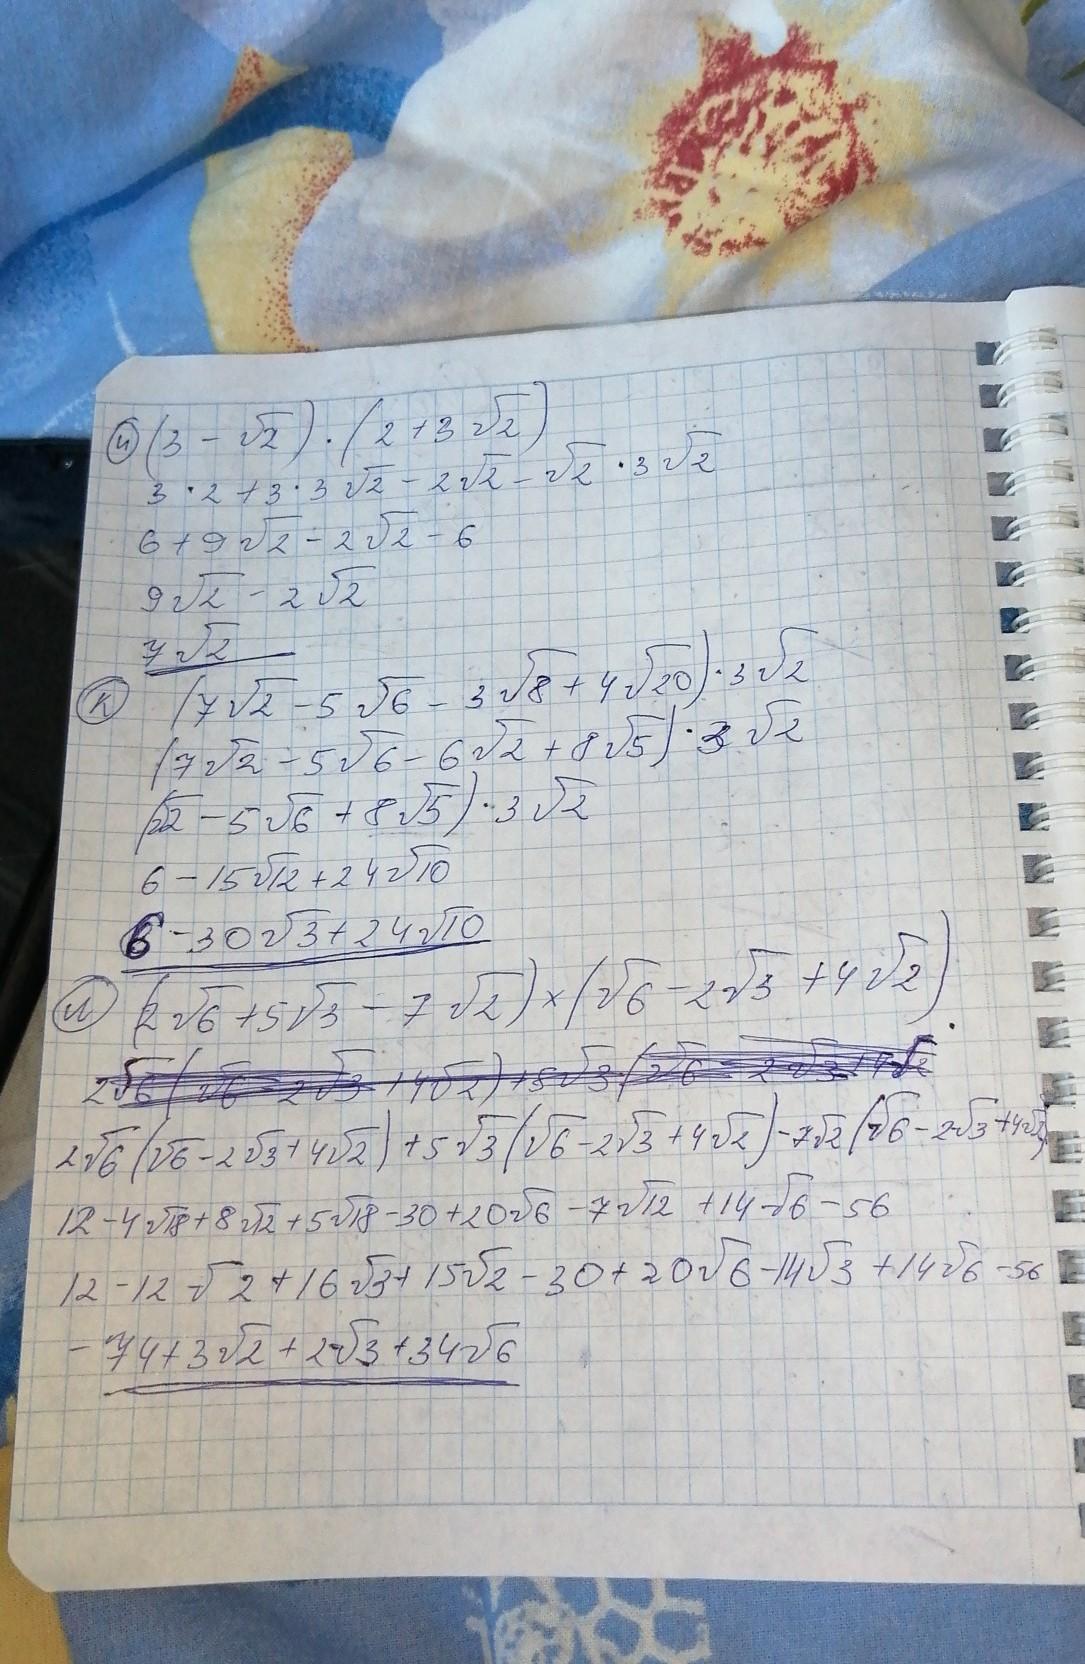 и) (3 - √2) · (2 + 3√2)
3 · 2 + 3 · 3√2 - 2√2 - √2 · 3√2
6 + 9√2 - 2√2 - 6
9√2 - 2√2
7√2
к) (7√2 - 5√6 - 3√8 + 4√20) · 3√2
(7√2 - 5√6 - 6√2 + 8√5) · 3√2
(√2 - 5√6 + 8√5) · 3√2
6 - 15√12 + 24√10
6 - 30√3 + 24√10
л) (2√6 + 5√3 - 7√2) × (√6 - 2√3 + 4√2).
2√6 (√6 - 2√3 + 4√2) + 5√3 (√6 - 2√3 + 4√2
2√6 (√6 - 2√3 + 4√2) + 5√3 (√6 - 2√3 + 4√2) - 7√2 (√6 - 2√3 + 4√2)
12 - 4√18 + 8√12 + 5√18 - 30 + 20√6 - 7√12 + 14√6 - 56
12 - 12√2 + 16√3 + 15√2 - 30 + 20√6 - 14√3 + 14√6 - 56
- 74 + 3√2 + 2√3 + 34√6